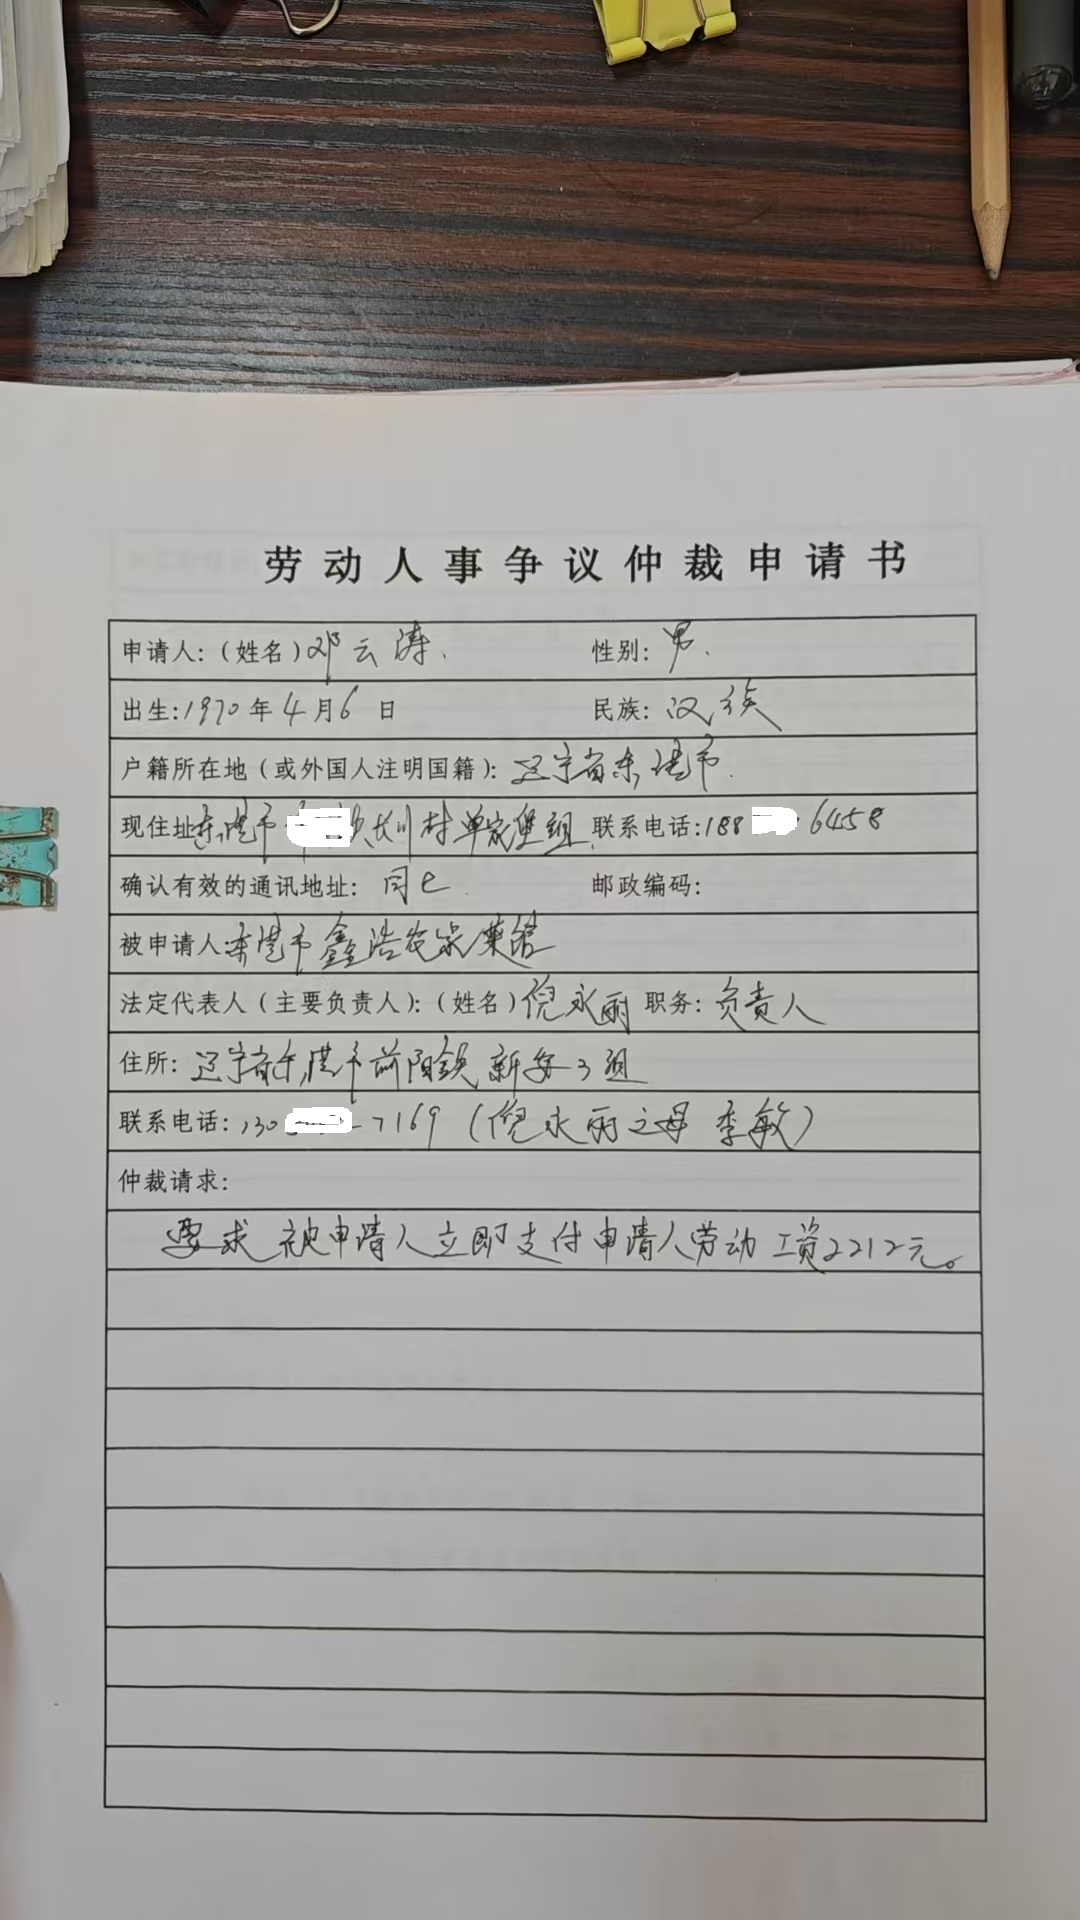 劳动人事争议仲裁申请书
申请人:(姓名)邓云涛. 性别: 男.
出生:1970年4月6日 民族: 汉族
户籍所在地(或外国人注明国籍): 辽宁省东港市.
现住址:东港市 村单家堡组. 联系电话:188 6458
确认有效的通讯地址: 同上. 邮政编码:
被申请人:东港市鑫浩农家菜馆
法定代表人(主要负责人):(姓名)倪永丽 职务: 负责人
住所: 辽宁省东港市前阳镇新安3组
联系电话:130 7169 (倪永丽之母 李敏)
仲裁请求:
要求被申请人立即支付申请人劳动工资2212元。